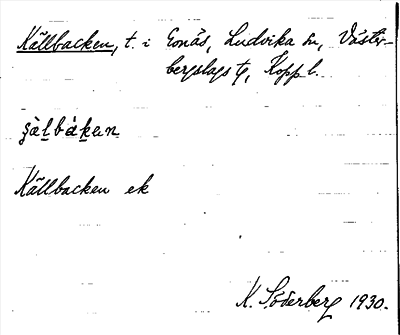 Källbacken, t. i Gonäs, Ludvika sn, Väster-
bergslags tg, Kopp l.
şàḻbàḵen
Källbacken ek
K. Söderberg 1930.